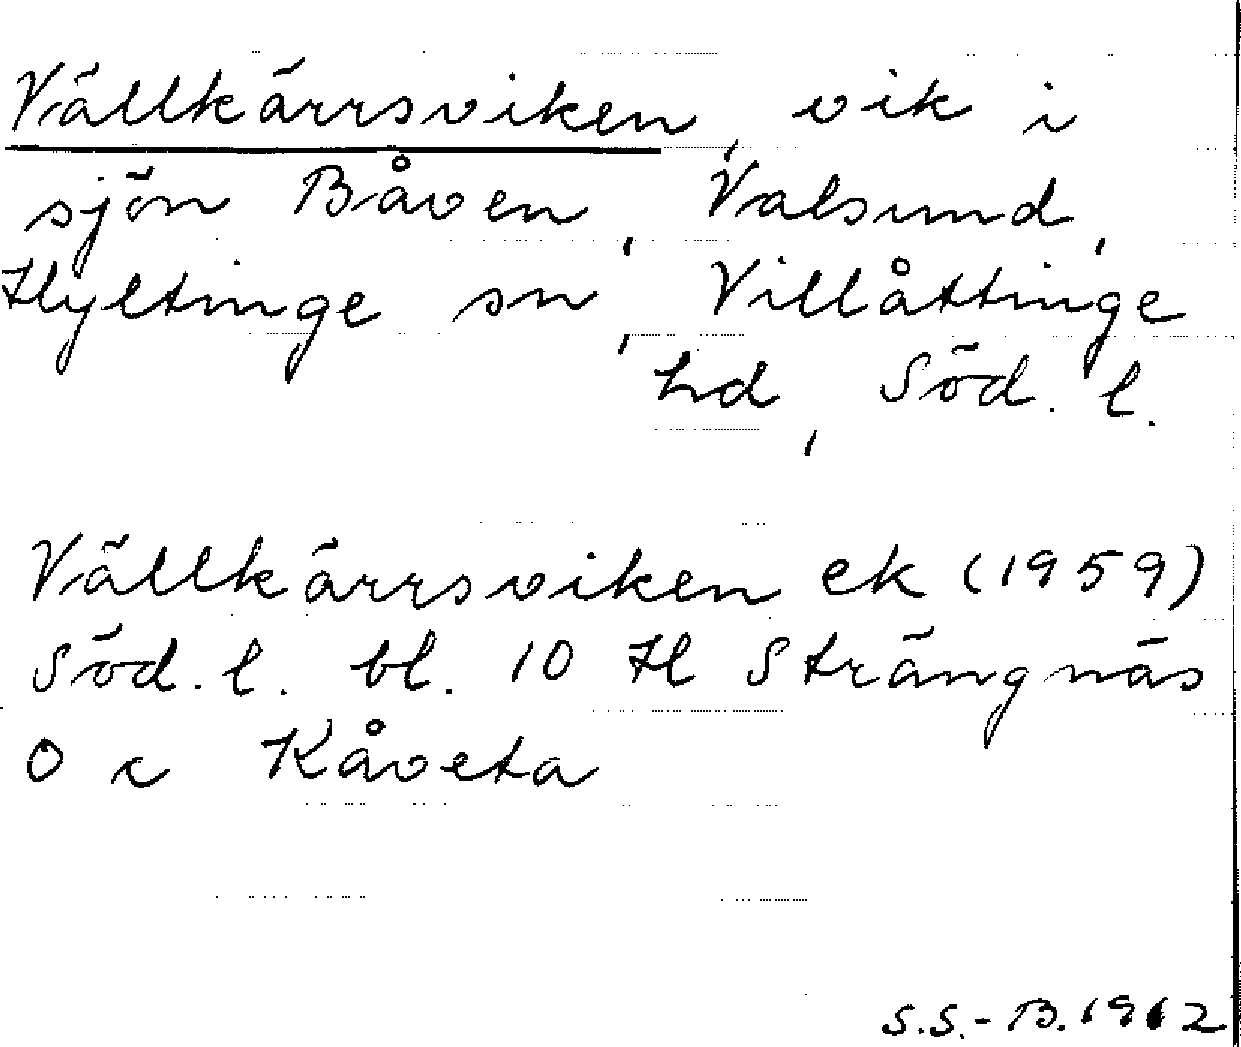 Vällkärrsviken, vik i
sjön Båven, Valsund,
Hyltinge sn, Villåttinge
hd, Söd. l.
Vällkärrsviken ek (1959)
Söd. l. bl. 10 H Strängnäs
O c Kåveta
S.S.-B. 1962